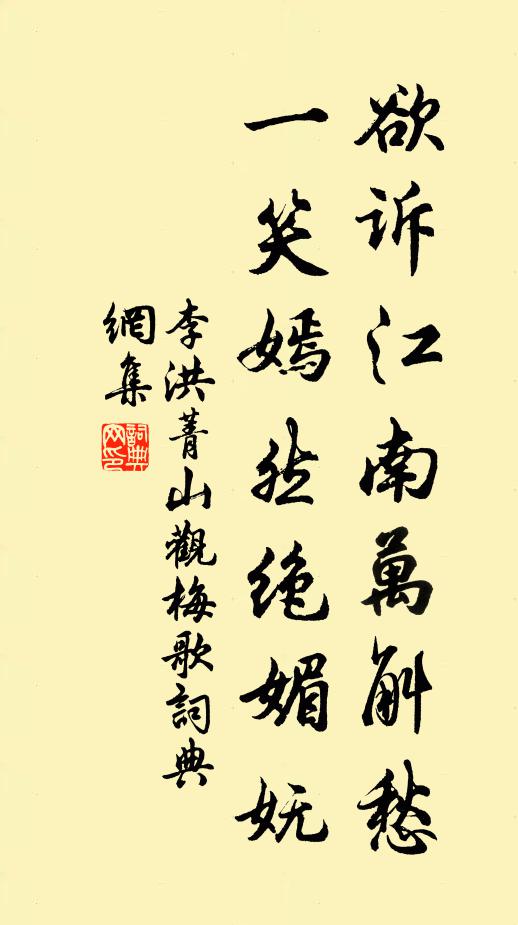 欲訴江南萬斛愁
一笑嫣然絶媚妩
李洪菁山觀梅歌詞典
網集
詞典
网印